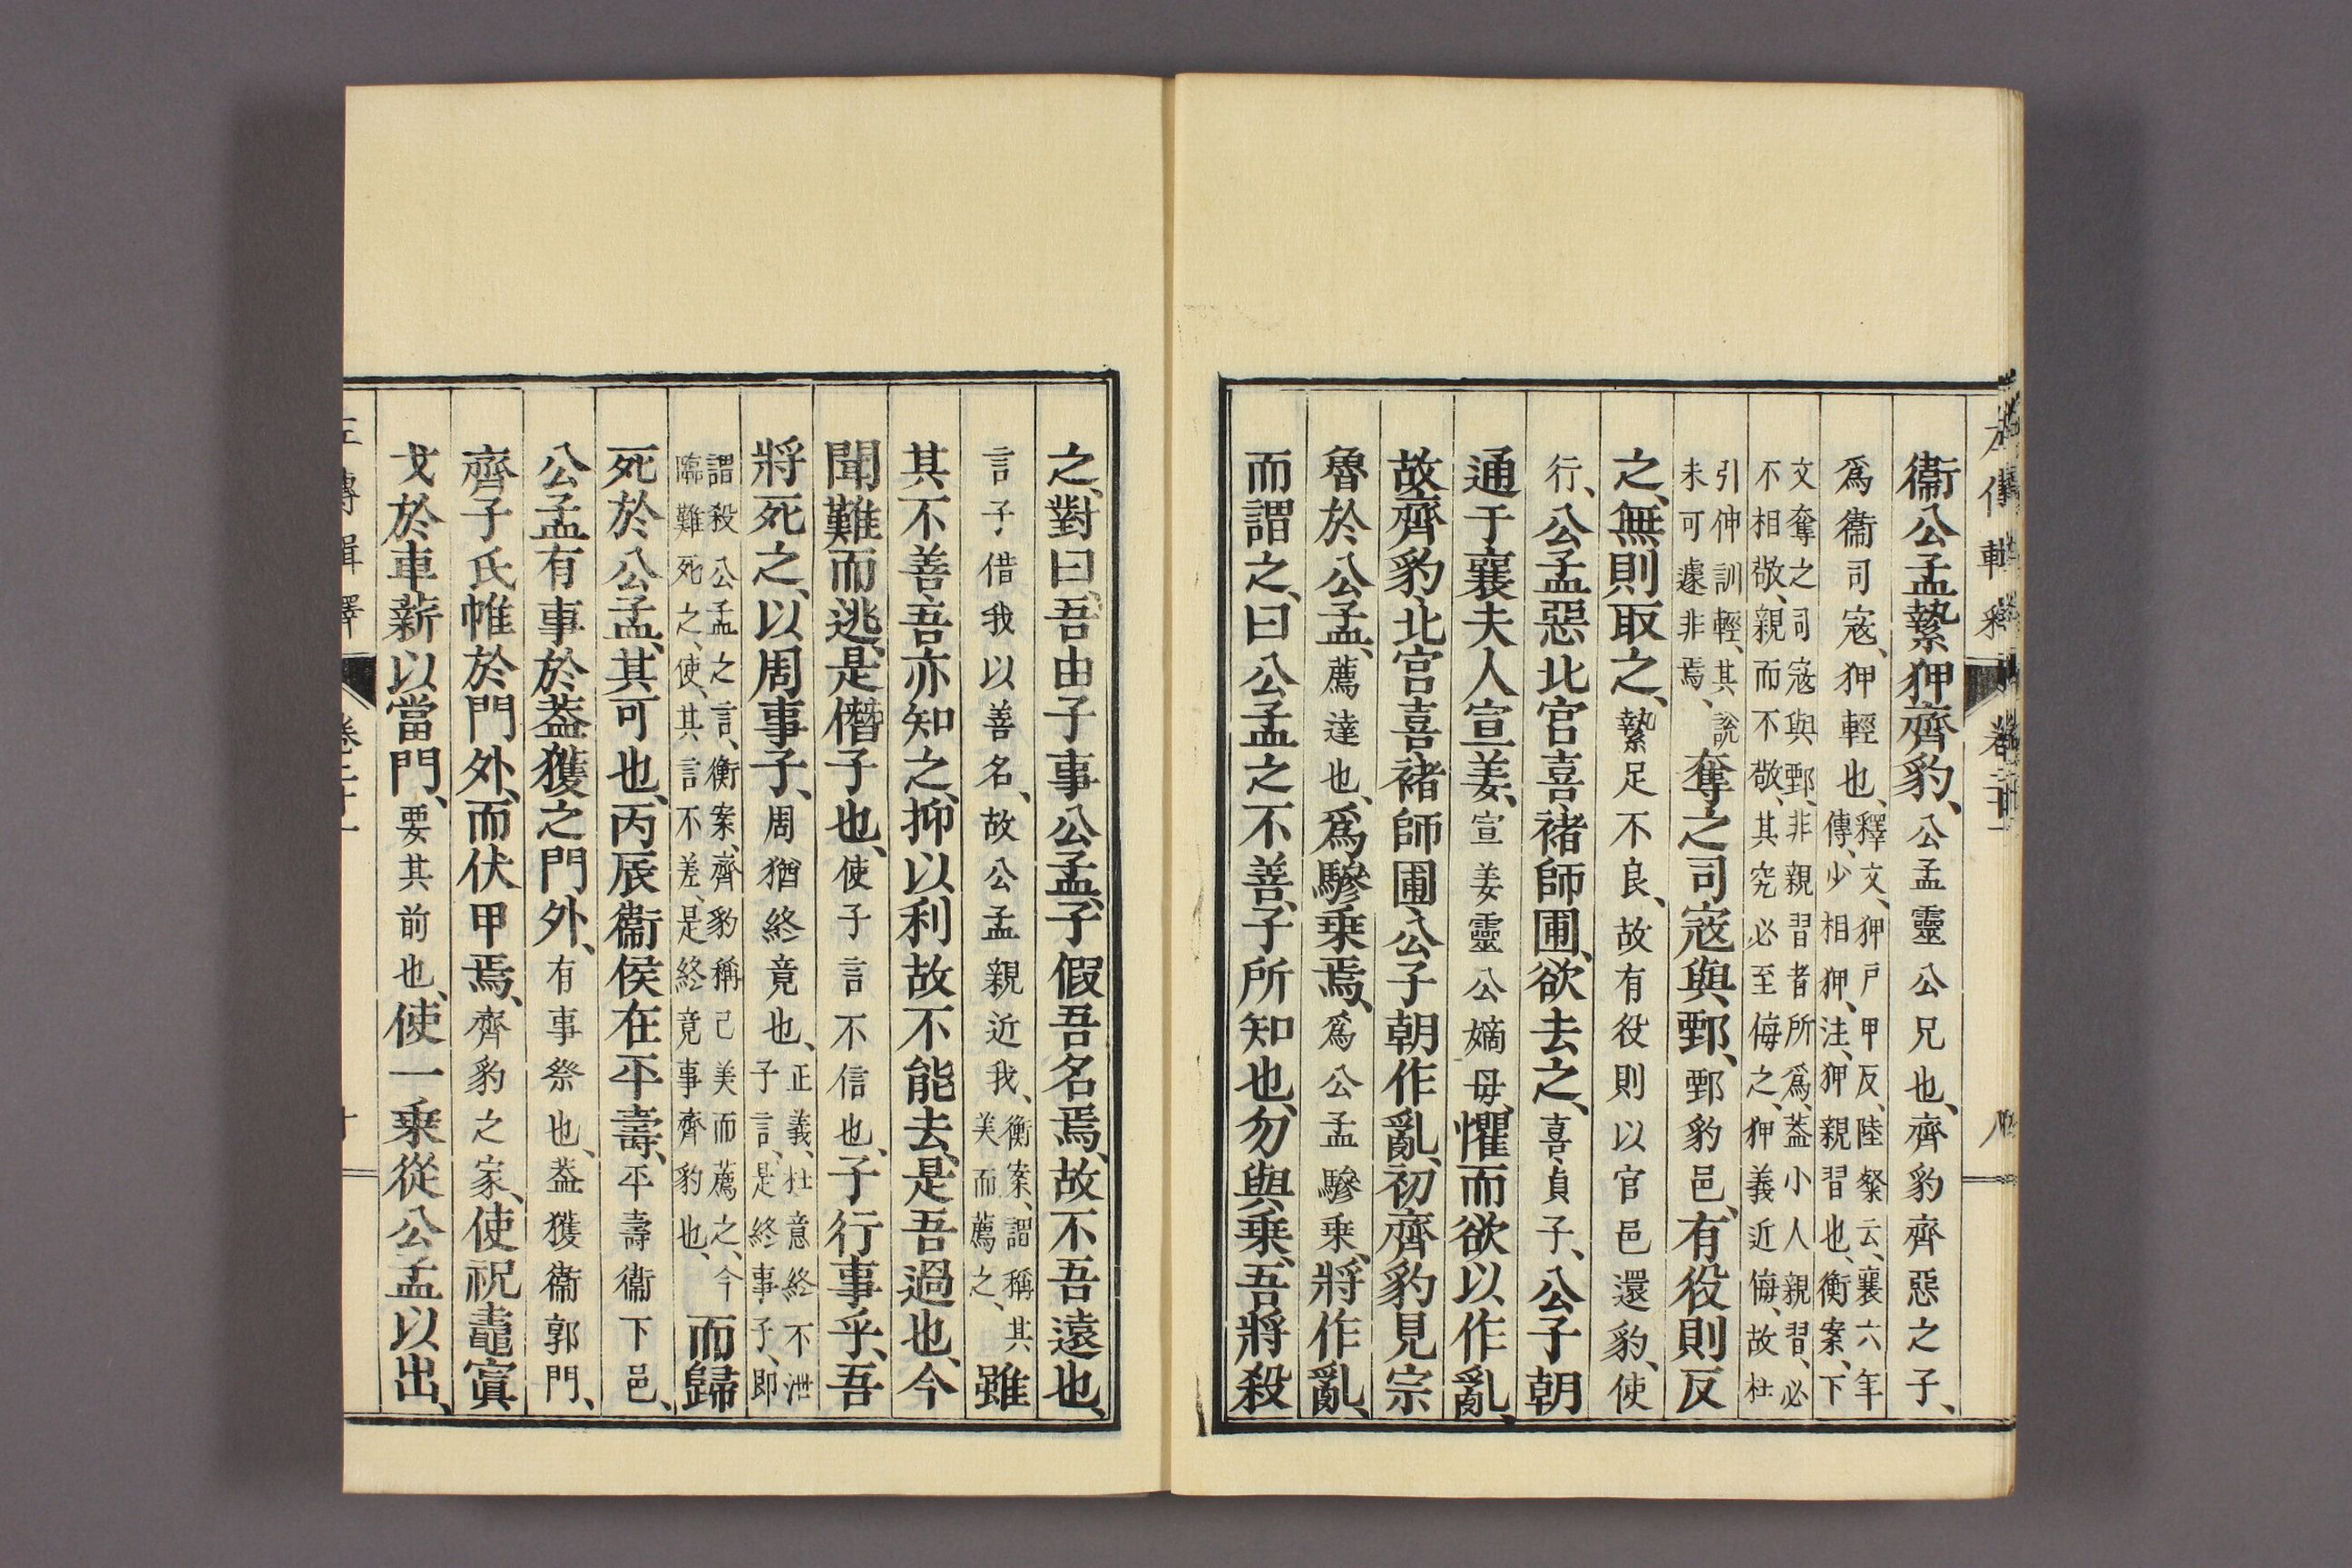 衞公孟縶狎齊豹、公孟靈公兄也、齊豹齊惡之子、
爲衞司寇、狎輕也、釋文、狎戸甲反、陸粲云、襄六年傳、少相狎、注、狎親習也、衡案、下
文奪之司寇與鄄、非親習者所爲、葢小人親習、必不相敬、親而不敬、其究必至侮之、狎義近侮、故杜
引伸訓輕、其說未可遽非焉、奪之司寇與鄄、鄄豹邑、有役則反
之、無則取之、縶足不良、故有役則以官邑還豹、使
行、公孟惡北宮喜褚師圃、欲去之、喜貞子、公子朝
通于襄夫人宣姜、宣姜靈公嫡母、懼而欲以作亂、
故齊豹、北宮喜褚師圃、公子朝作亂、初齊豹見宗
魯於公孟、薦達也、爲驂乘焉、爲公孟驂乘、將作亂、
而謂之、曰公孟之不善、子所知也、勿與乘、吾將殺
之、對曰、吾由子事公孟、子假吾名焉、故不吾遠也、
言子借我以善名、故公孟親近我、衡案、謂稱其美而薦之、雖
其不善、吾亦知之、抑以利故、不能去、是吾過也、今
聞難而逃、是僭子也、使子言不信也、子行事乎、吾
將死之、以周事子、周猶終竟也、正義、杜意終不泄子言、是終事子、卽
謂殺公孟之言、衡案、齊豹稱己美而薦之、今臨難死之、使其言不差、是終竟事齊豹也、而歸
死於公孟、其可也、丙辰衞侯在平壽、平壽衞下邑、
公孟有事於葢獲之門外、有事祭也、葢獲衞郭門、
齊子氏帷於門外、而伏甲焉、齊豹之家、使祝鼃寘
戈於車薪以當門、要其前也、使一乘從公孟以出、
左傳輯釋　卷二十一　十